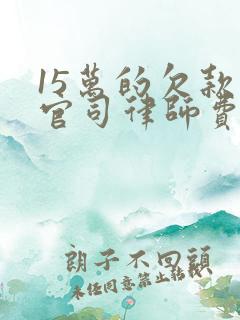 15萬的欠款
官司律師費
朗子不回頭
未经同意禁止转载